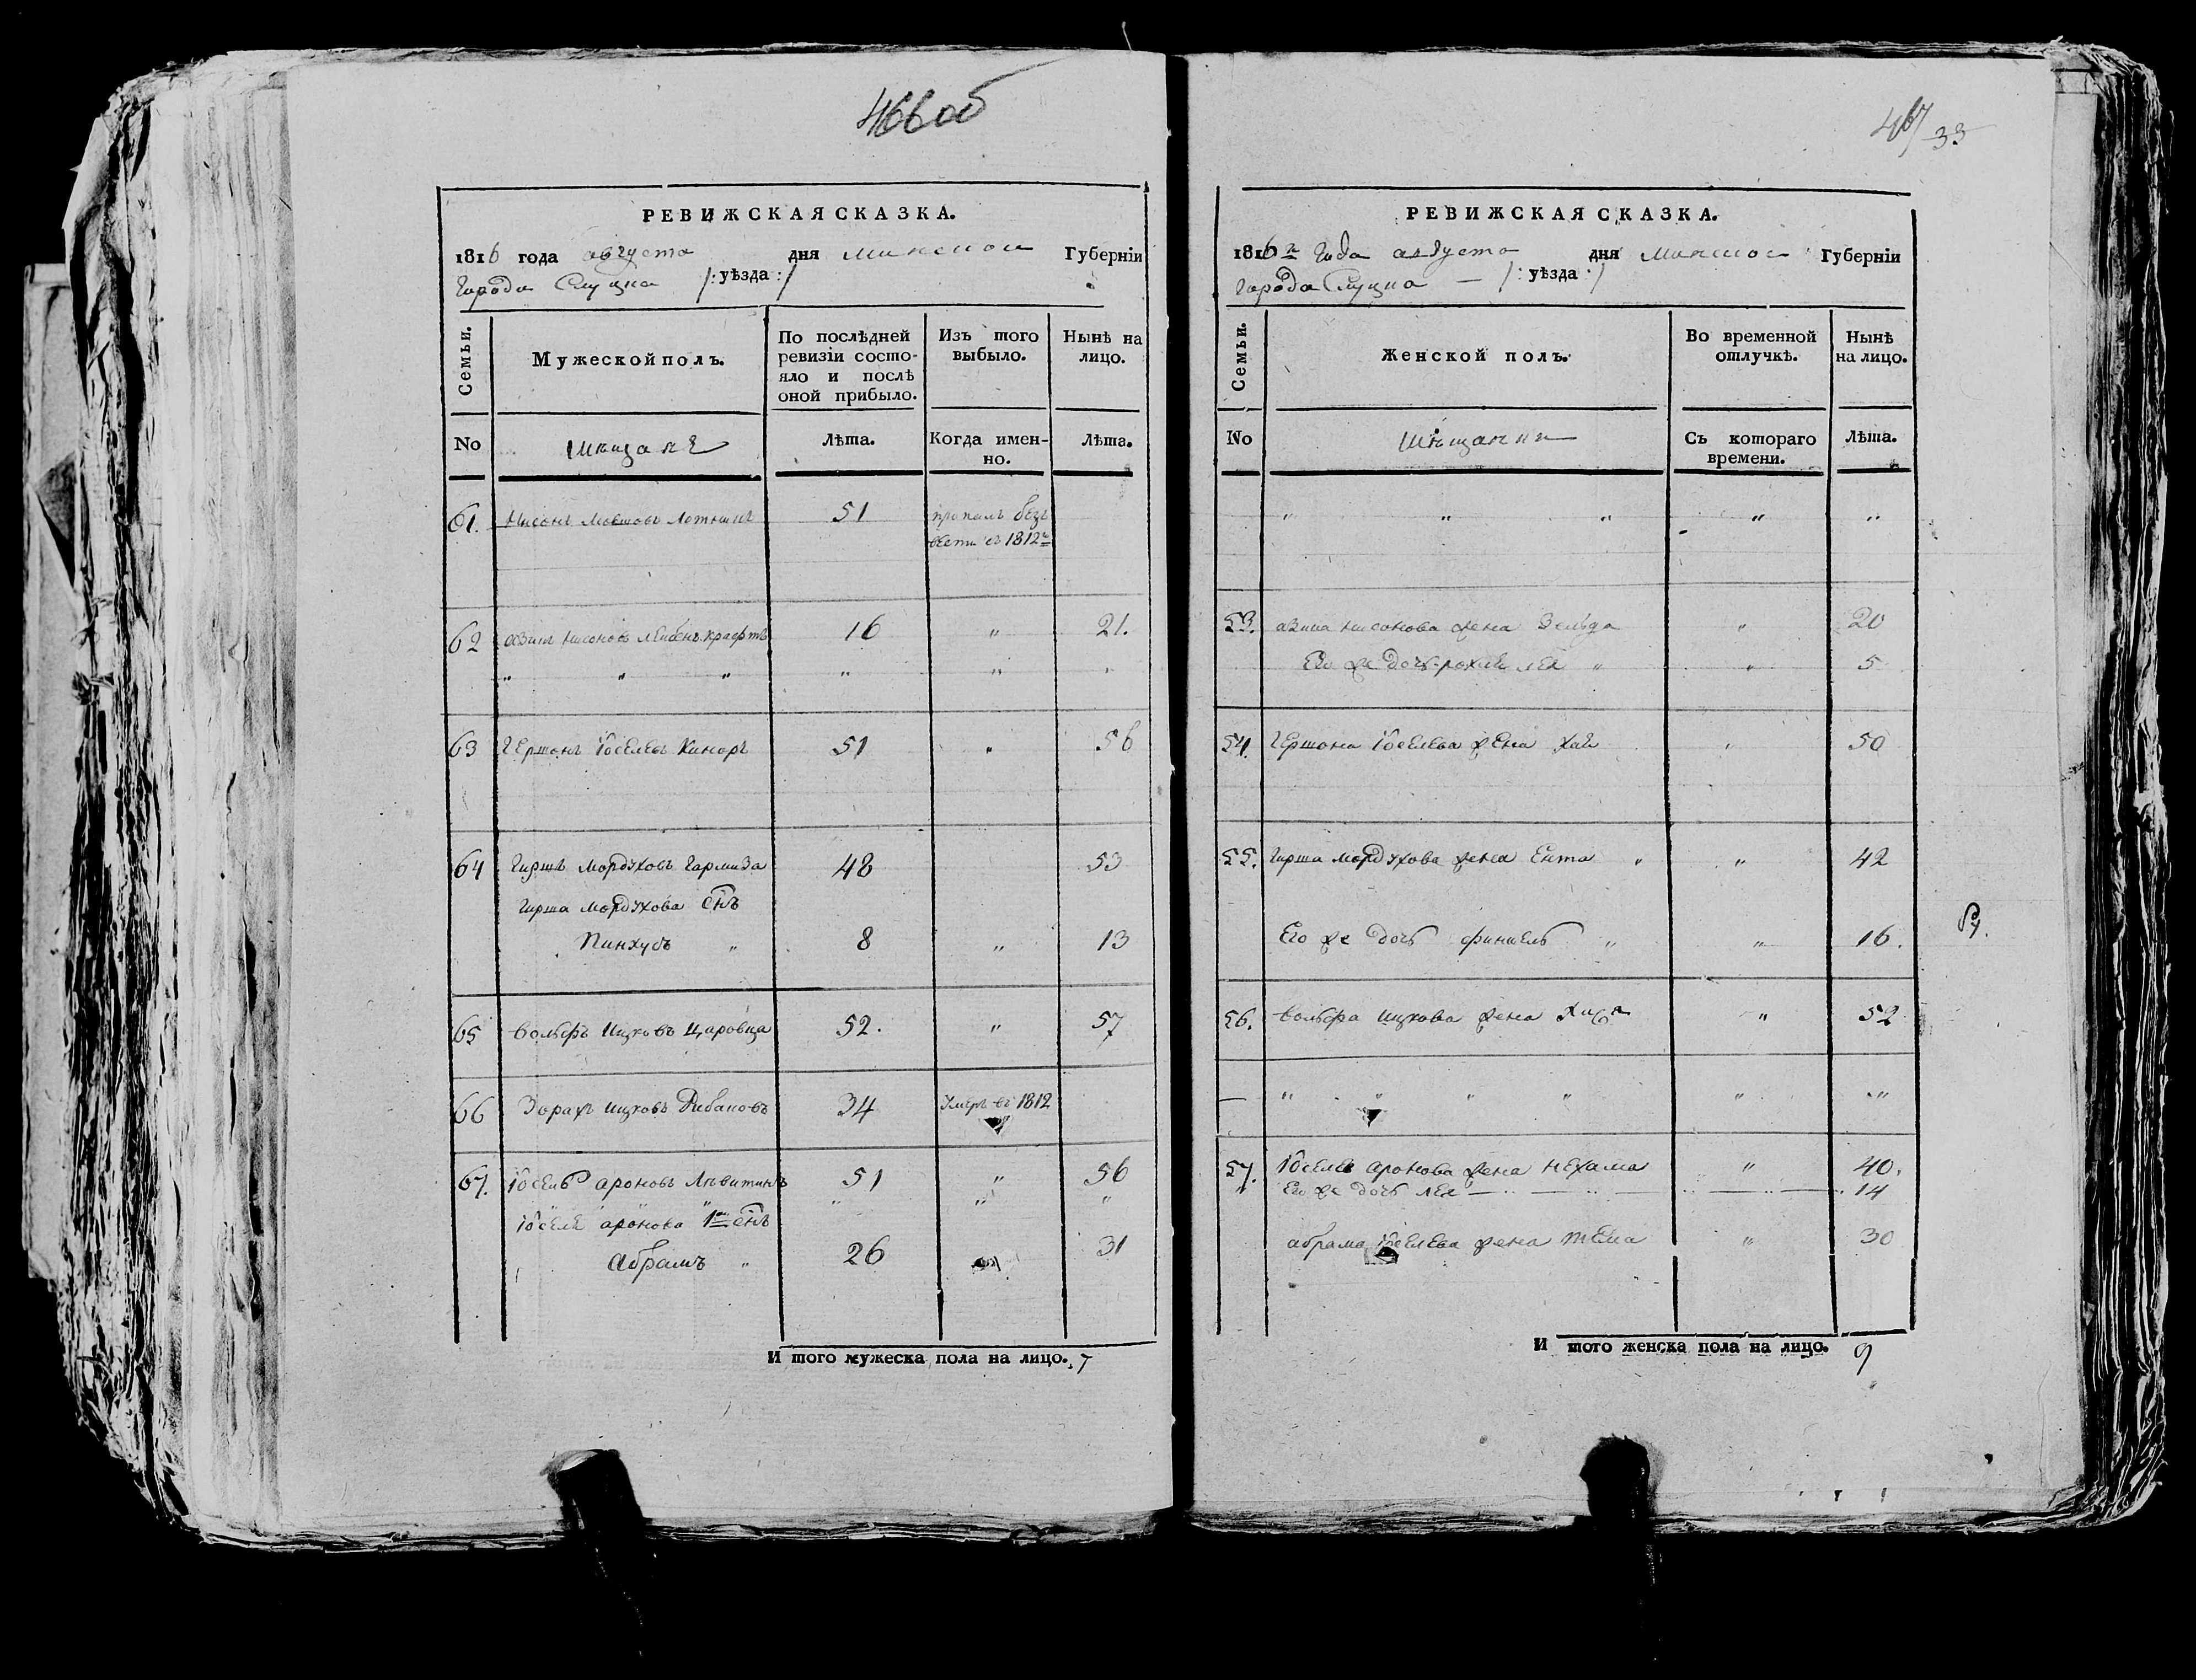 466 об
РЕВИЖСКАЯ СКАЗКА.
1816 года августа дня минской Губернiи
города Слуцка /: уѣзда :/
Семьи.
Мужеской полъ.
По послѣдней ревизiи состояло и послѣ оной прибыло.
Изъ того выбыло.
Нынѣ на лицо.
No
мещане
Лѣта.
Когда именно.
Лѣта.
61. Нисонъ Мовшовъ 51 пропалъ безъ
вести въ 1812г
62 Абелевъ 16 " 21.
" " " " " "
63 Гершонъ Iоселевъ Кинаръ 51 " 56
64 Гиршъ Мордуховъ Гармиза 48 53
Гирша Мордухова снъ
Пинхусъ " 8 " 13
65 Вольфъ Ицковъ Царовца 52. " 57
66 Зорахъ Ицковъ Рибаковъ 34 Умеръ въ 1812
67. Iосель Ароновъ Левитинъ 51 " 56
" " " " " "
Iоселя Аронова 1й снъ
Абрамъ " 26 31
И того мужеска пола на лицо. 7
467/33
РЕВИЖСКАЯ СКАЗКА.
1816го Года августа дня минской Губернiи
города Слуцка — /: уѣзда :/
Семьи.
Женской полъ.
Во временной отлучкѣ.
Нынѣ на лицо.
No
мѣщанки
Съ котораго времени.
Лѣта.
" " " " "
53. Нисонова жена Зельда " 20
Его же дочь Рохля Лея " " 5
54. Гершона Iоселева жена Хая " 50
55. Гирша Мордухова жена Ента " " 42
Его же дочь " " 16.
56. Вольфа Ицкова жена " 52
— " " " " " "
57. Iоселя Аронова жена Нехама " 40.
Его же дочь Лея — 14
Абрама Iоселева жена " 30
И того женска пола на лицо. 9